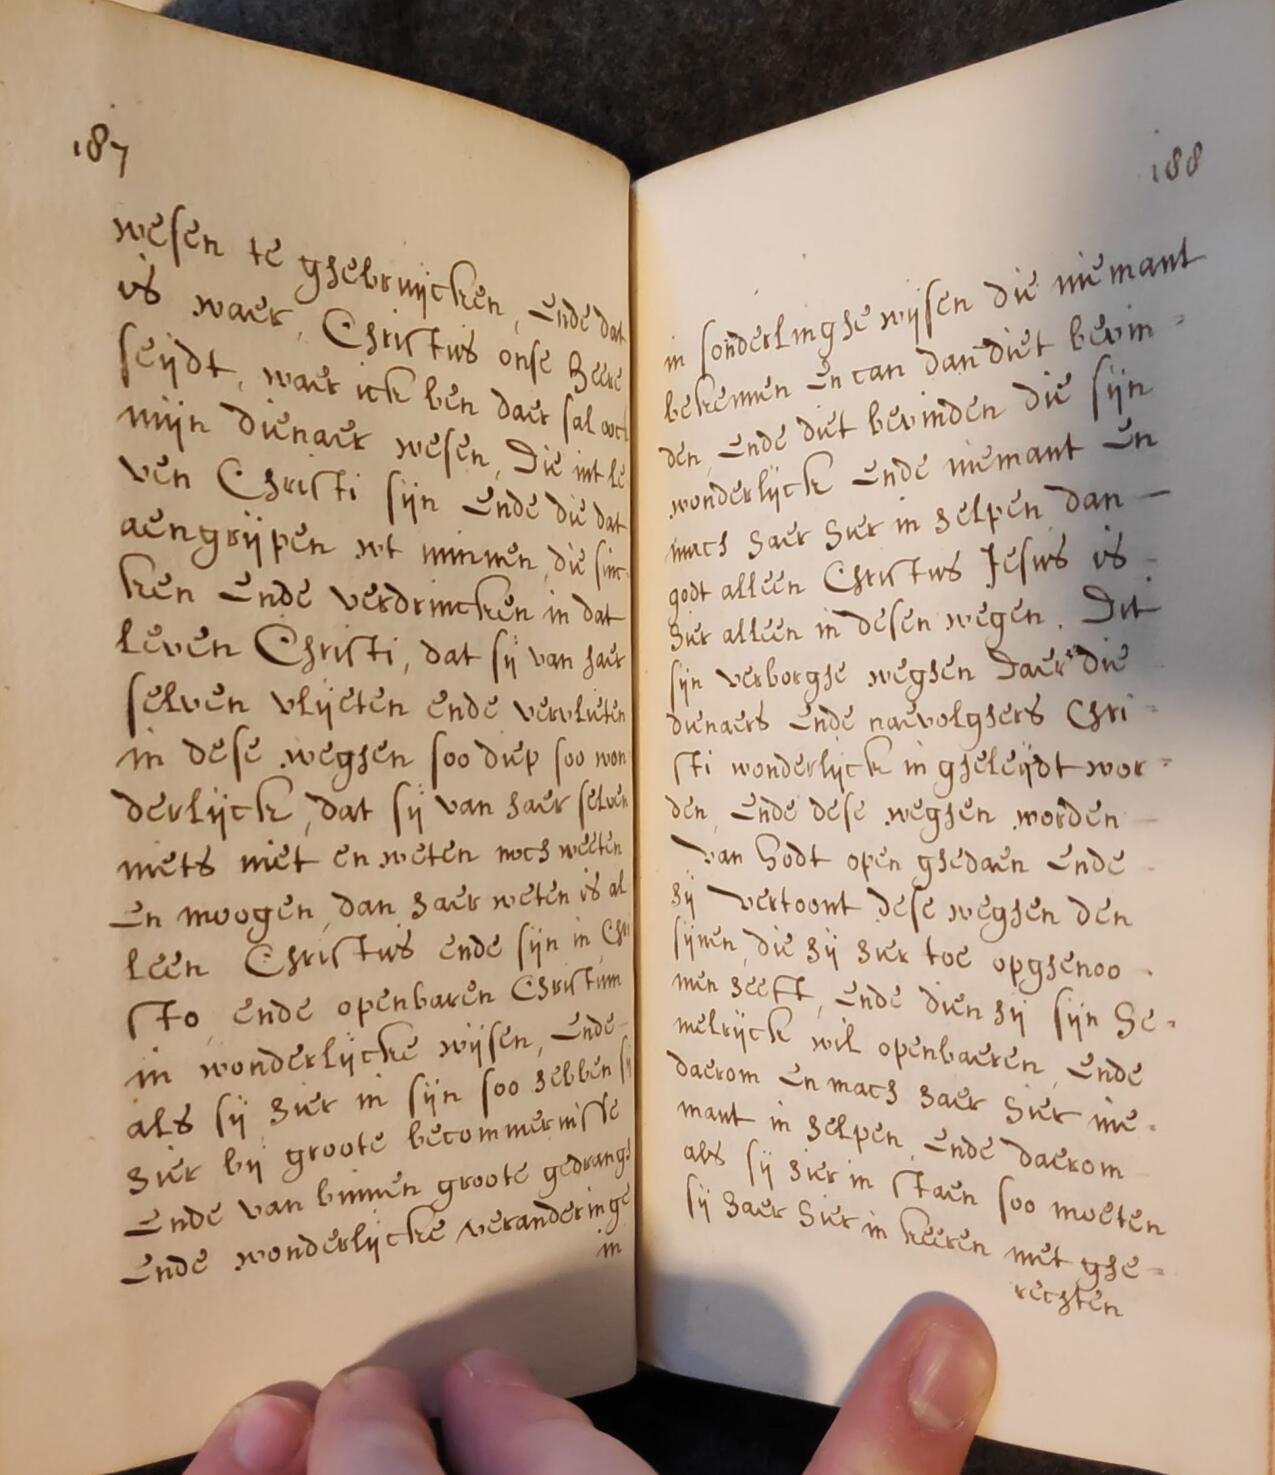 187
wesen te ghebruÿcken, Ende dat
is waer, Christus onse heere
seÿdt, waer ick ben daer sal oock
mÿn dienaer wesen, Die int le
ven Christi sÿn Ende die dat
aengrÿpen wt minnen, die sinc¬
ken Ende verdrincken in dat
leven Christi, dat sÿ van haer
selven vlÿeten ende vervlieten
in dese weghen soo diep soo won
derlÿck, dat sÿ van haer selven
niets niet en weten noch weeten
En moogen, dan haer weten is al
leen Christus ende sÿn in Chri
sto, ende openbaren Christum
in wonderlÿcke wÿsen, Ende
als sÿ hier in sÿn soo hebben sÿ
hier bÿ groote becommernisse
Ende van binnen groote gedrangh
Ende wonderlÿcke veranderinge
in
188
in sonderlinghe wÿsen die niemant
bekennen En can dan diet bevin=
den, Ende diet bevinden die sÿn
wonderlÿck Ende niemant En
mach haer hier in helpen dan
godt alleen Christus Jesus is
hier alleen in desen wegen. Dit
sÿn verborghe weghen Daer die
dienaers Ende naevolghers Chri=
sti wonderlÿck in gheleÿdt wor=
den, Ende dese weghen worden
van Godt open ghedaen Ende
hÿ vertoont dese weghen den
sÿnen, die hÿ hier toe opghenoo-
men heeft, Ende dien hÿ sÿn he=
melrÿck wil openbaeren, Ende
daerom En mach haer hier nie=
mant in helpen, Ende daerom
als sÿ hier in staen soo moeten
sÿ haer hier in keeren met ghe=
rechten